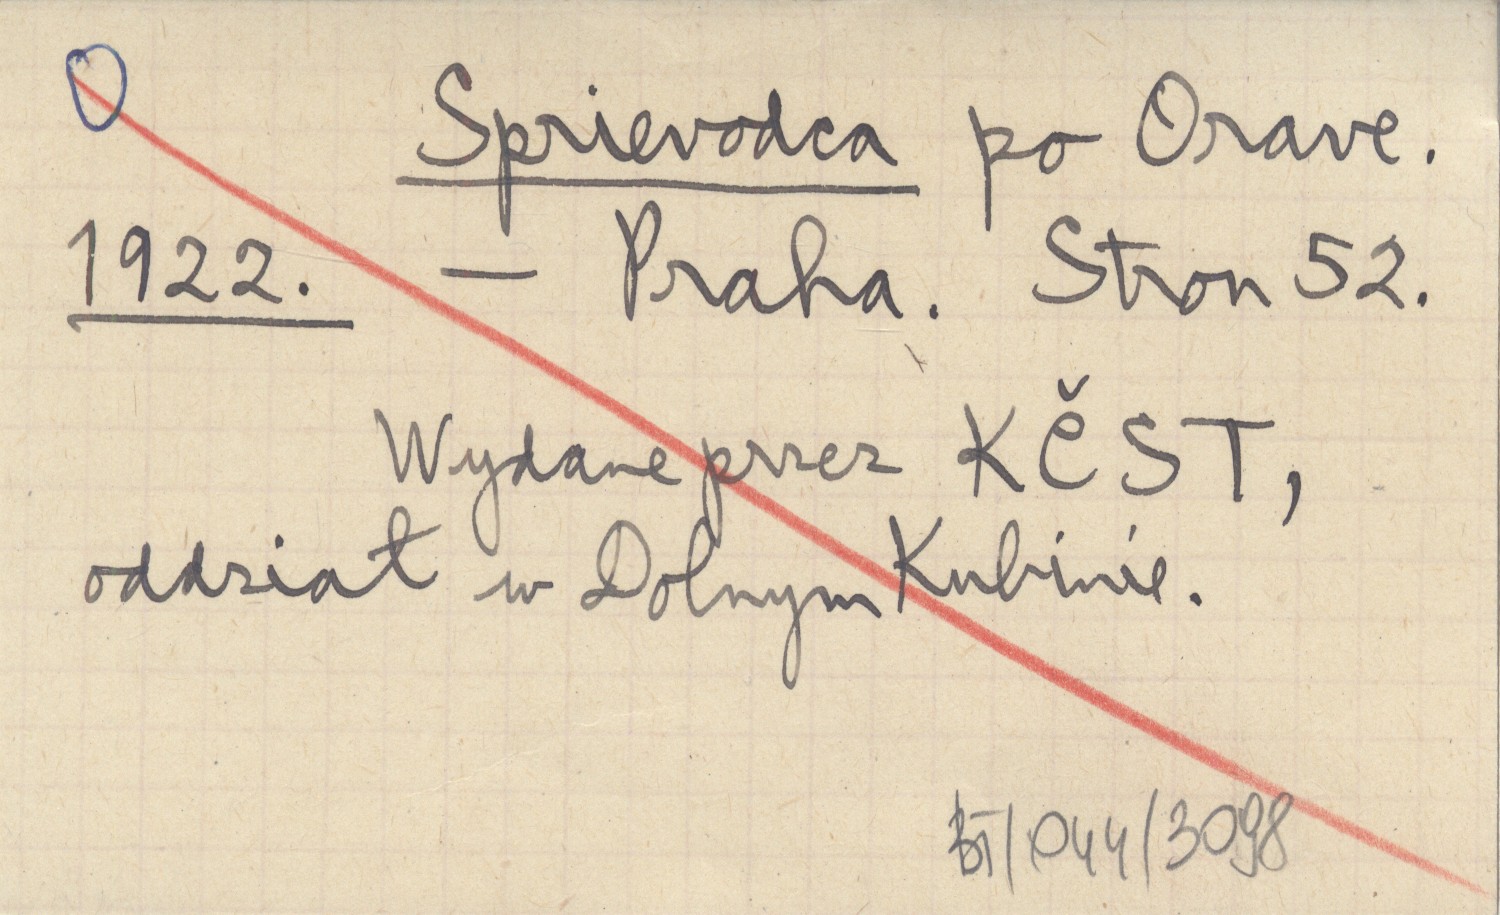 Sprievodca po Orave.
1922. — Praha. Stron 52.
Wydane przez KČST,
oddział w Dolnym Kubinie.
/044/3098